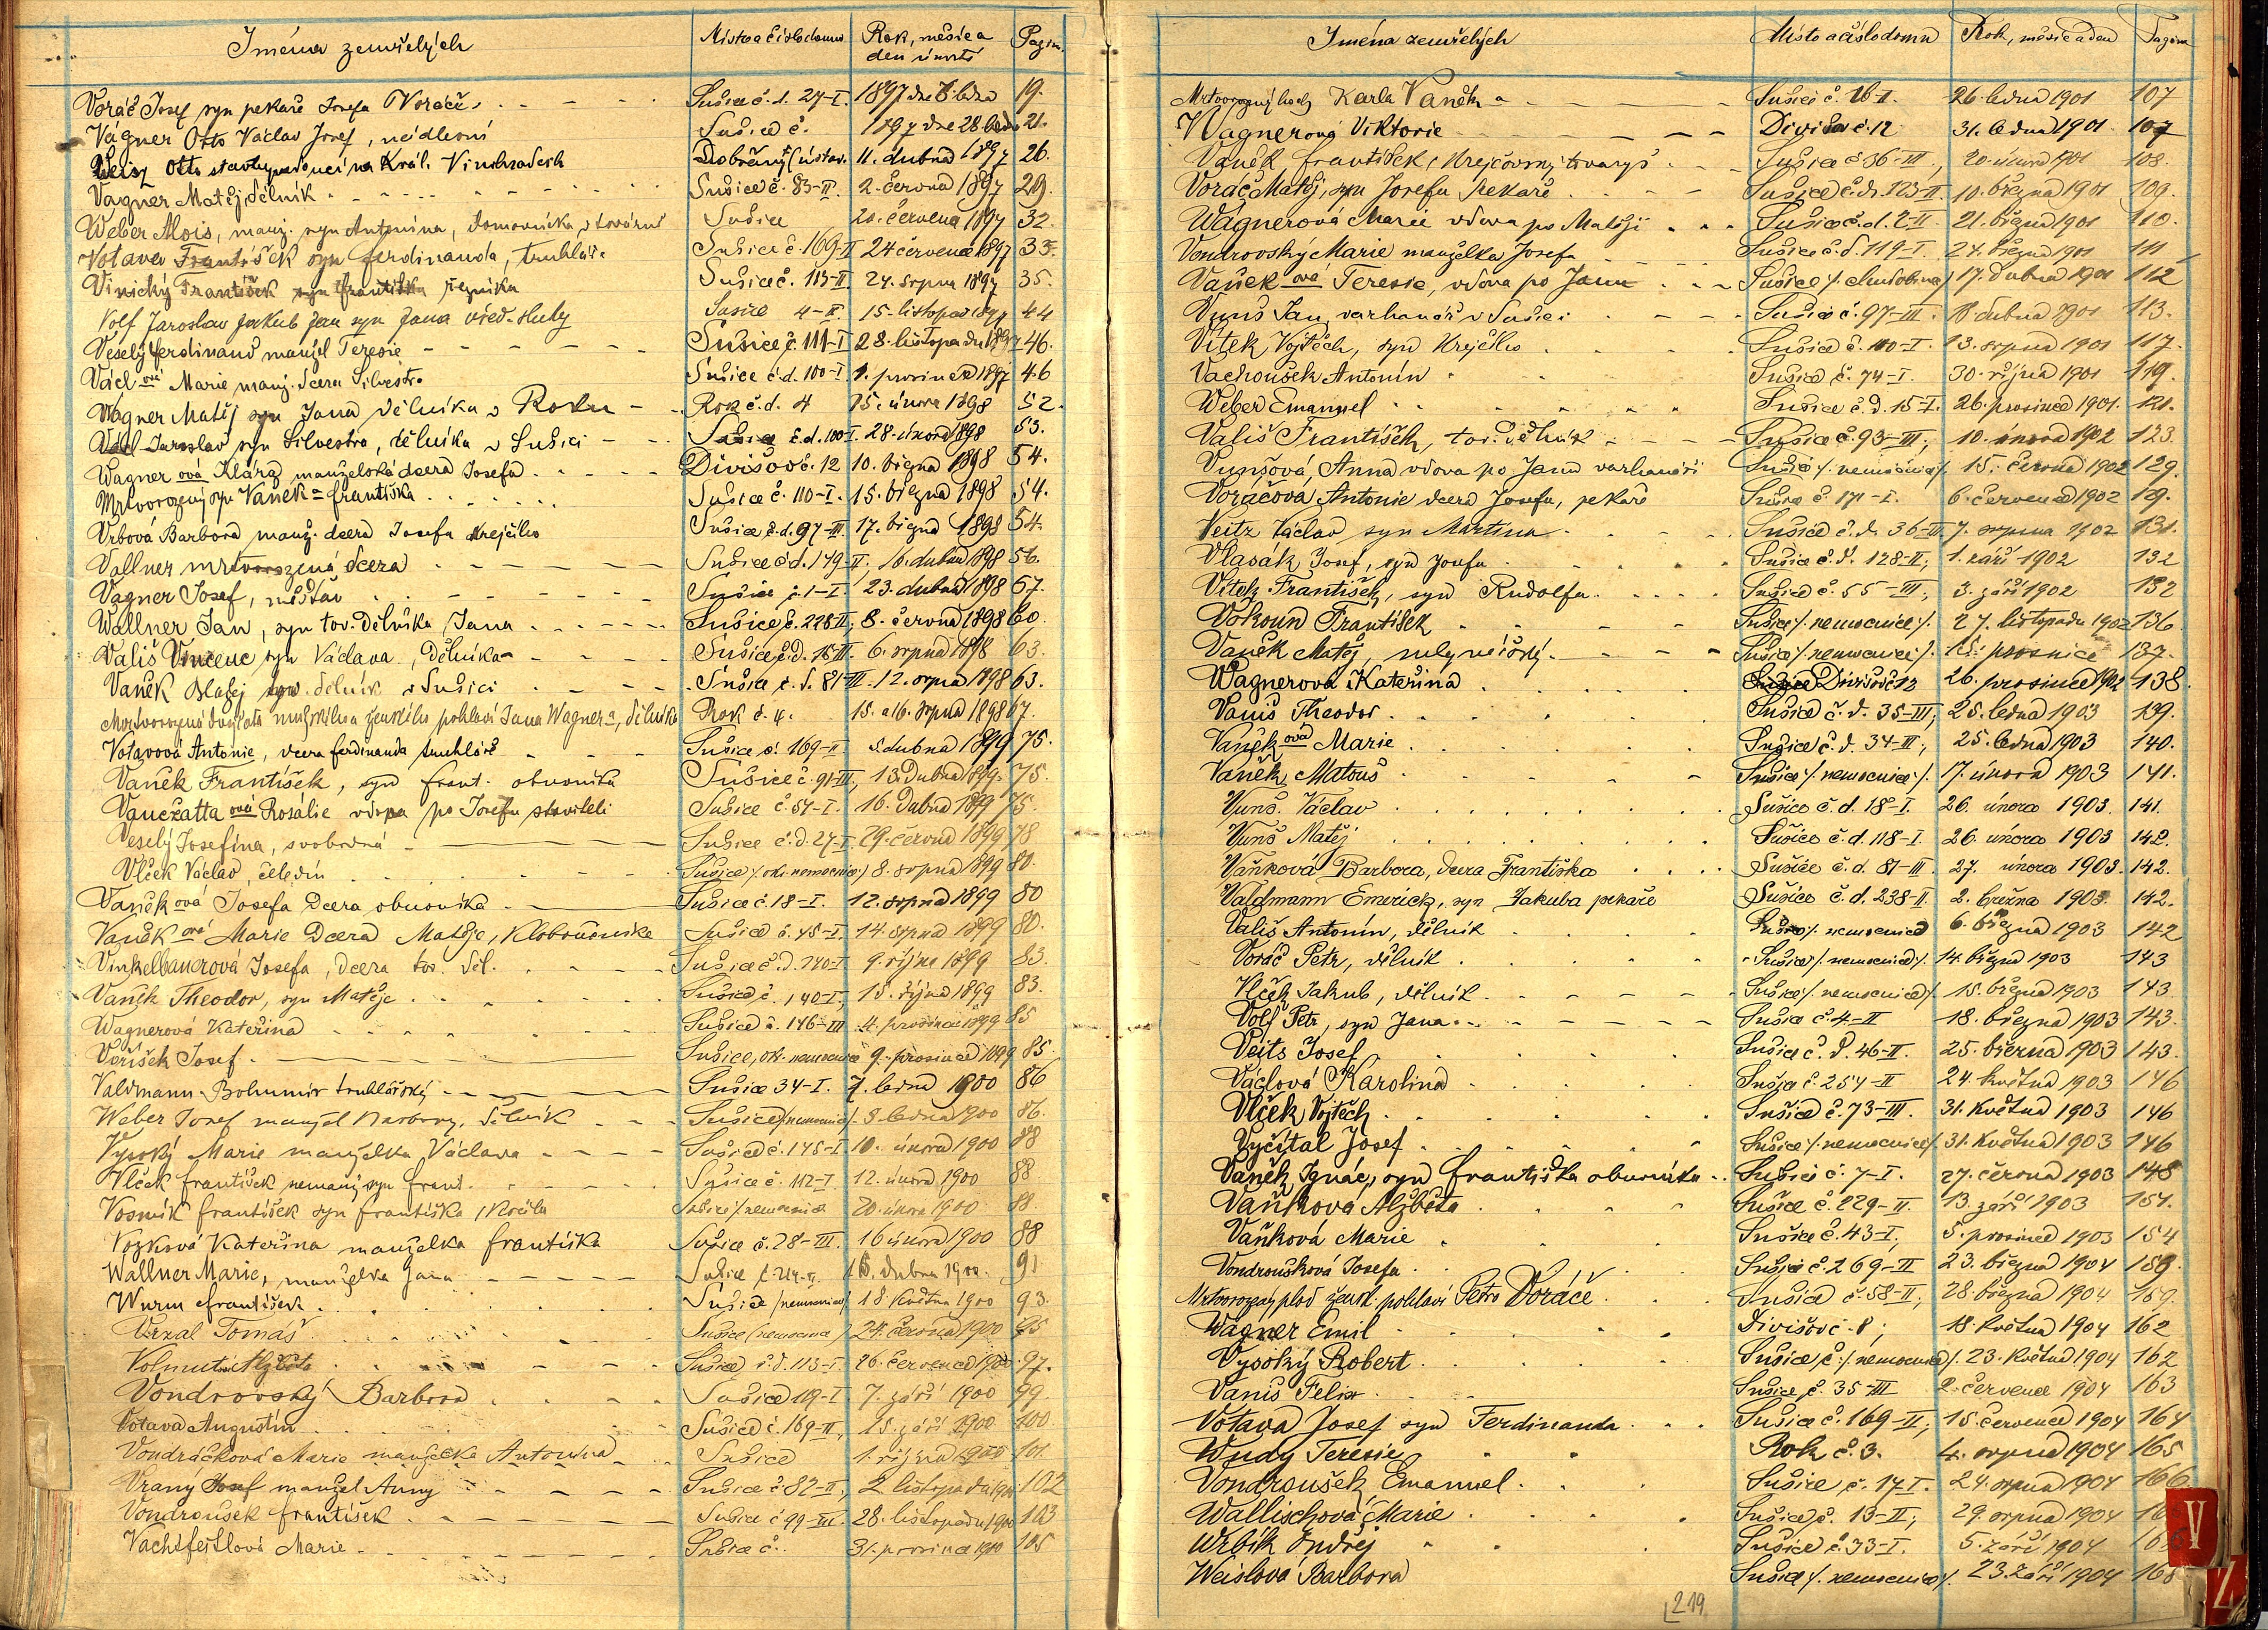 Jména zemřelých Místo a číslo domu Rok, měsíc a den úmrtí Pagin.
Voráč Josef syn pekaře Josefa Voráče Sušice č. d. 27-I. 1897 dne 8. ledna 19.
Vágner Otto Václav Josef, Sušice č. 1897 dne 28. ledna 21.
Otto na Král. Vinohradech Dobřany (ústav. 11. dubna 1897 26.
Vagner Matěj dělník Sušice č. 83-II. 2. června 1897 29.
Weber Alois, manž. syn Antonína, domovníka v továrně Sušice 20. června 1897 32.
Votava František syn Ferdinanda, truhláře Sušice č. 169-II 24 července 1897 33.
Vinický František syn Františka řezníka Sušice č. 113-II 24. srpna 1897 35.
Volf Jaroslav Jakub Jan syn Jana úřed. sluhy Sušice 4-II. 15. listopad 1897 44
Veselý Ferdinand manžel Teresie Sušice č. 111-I 28. listopadu 1897 46.
Václ ová Marie manž. dcera Silvestra Sušice č. d. 100-I. 1. prosince 1897 46
Wágner Matěj syn Jana dělníka v Roku Rok č. d. 4 15. února 1898 52.
Václ Jaroslav syn Silvestra, dělníka v Sušici Sušice č. d. 100-I. 28. února 1898 53.
Wagner ová Klára manželská dcera Josefa Divišov č. 12 10. března 1898 54.
Mrtvorozený syn Vaněk a Františka Sušice č. 110-I. 15. března 1898 54.
Vrbová Barbora manž. dcera Josefa krejčího Sušice č. d. 97-III. 17. března 1898 54.
Vallner mrtvorozená dcera Sušice č. d. 179-II. 16. dubna 1898 56.
Vagner Josef, měšťan Sušice č. 1-I. 23. dubna 1898 57.
Wallner Jan, syn tov. dělníka Jana Sušice č. 228-II; 8. června 1898 60.
Vališ Vincenc syn Václava, dělníka Sušice č. d. 15-III. 6. srpna 1898 63.
Vaněk Blažej syn. dělník v Sušici Sušice č. d. 81-III. 12. srpna 1898 63.
Mrtvorozená dvojčata mužského a ženského pohlaví Jana Wagnera, dělníka Rok č. 4. 15. a 16. srpna 1898 67.
Votavová Antonie, dcera Ferdinanda truhláře Sušice č. 169-II 5. dubna 1899 75.
Vaněk František, syn Frant. obuvníka Sušice č. 91-III, 13. dubna 1899. 75.
Vančatta ová Rosálie vdova po Josefu staviteli Sušice č. 54-I. 16. dubna 1899 75.
Veselý Josefína, svobodná Sušice č. d. 27-I. 29. června 1899 78
Vlček Václav, čeledín Sušice /. okr. nemocnice/ 8. srpna 1899 80.
Vaněk ová Josefa dcera obuvníka Sušice č. 18-I. 12. srpna 1899 80
Vaněk ová Marie dcera Matěje, kloboučníka Sušice č. 45-I. 14. srpna 1899 80.
Vinkelbauerová Josefa, dcera tov. děl. Sušice č. d. 140-I. 9. října 1899 83.
Vaněk Theodor, syn Matěje Sušice č. 140-I, 15. října 1899 83.
Wagnerová Kateřina Sušice č. 146-III 4. prosince 1899 85
Voříšek Josef. Sušice, okr. nemocnice 9. prosince 1899 85.
Valdmann Bohumír truhlářský Sušice 34-I. 7. ledna 1900 86
Weber Josef manžel Barbory, dělník Sušice /nemocnice/. 8. ledna 1900 86.
Vysoký Marie manželka Václava Sušice č. 145-I. 10. února 1900 88
Vlček František nemanž. syn Frant. Sušice č. 112-I. 12. února 1900 88
Vosmík František syn Františka, Sušice /nemocnice 20. února 1900 88.
Vozková Kateřina manželka Františka Sušice č. 28-III. 16 února 1900 88
Wallner Marie, manželka Jana Sušice č. 214-II. 15. dubna 1900. 91
Wurm František Sušice /nemocnice/ 18. května 1900 93.
Vrzal Tomáš Sušice (nemocnice) 24. června 1900 95
Volmut Alžběta Sušice č. d. 113-I. 26. července 1900. 97.
Vondrovský Barbora Sušice 119-I. 7. září 1900 99
Votava Augustin Sušice č. 169-II, 15. září 1900 100.
Vondráčková Marie manželka Antonína Sušice 1. října 1900 101
Vraný Josef manžel Anny Sušice č. 82-II; 2 listopadu 1900 102
Vondroušek František Sušice č. 99-III. 28. listopadu 1900 103
Vachtfeitlová Marie Sušice č. 31. prosince 1900 105
Jména zemřelých Místo a číslo domu Rok, měsíc a den Pagina
Mrtvorozený hoch Karla Vaněka Sušice č. 16-I. 26. ledna 1901 107
Wagnerová Viktorie Divišov č. 12 31. ledna 1901 107
Vaněk František, krejčovský tovaryš Sušice č. 86-III, 20. února 1901 108.
Voráč Matěj, syn Josefa pekaře Sušice č. d. 123-II. 10. března 1901 109.
Wagnerová Marie vdova po Matěji Sušice č. d. 2-II. 21. března 1901 110.
Vondrovský Marie manželka Josefa Sušice č. d. 119-I. 24. března 1901 111
Vaněk ová Teresie, vdova po Janu Sušice /. chudobinec/ 17. dubna 1901 112
Vunš Jan, varhanář v Sušici Sušice č. 97-III. 18. dubna 1901 113.
Vítek Vojtěch, syn krejčího Sušice č. 100-I. 13. srpna 1901 117.
Vachoušek Antonín Sušice č. 74-I. 30. října 1901 119.
Weber Emanuel Sušice č. d. 15-I. 26. prosince 1901. 121.
Vališ František, tov. dělník Sušice č. 93-III; 10. února 1902 123.
Vunšová Anna vdova po Janu varhanáři Sušice /. nemocnice/. 15. června 1902 129.
Voráčová Antonie dcera Josefa, pekaře Sušice č. 171-I. 6. července 1902 129.
Veitz Václav syn Martina Sušice č. d. 36-III 7. srpna 1902 131.
Vlasák Josef, syn Josefa Sušice č. d. 128-II; 1. září 1902 132
Vítek František, syn Rudolfa Sušice č. 55-III; 3. září 1902 132
Vokoun František Sušice /. nemocnice /. 27. listopadu 1902 136.
Vaněk Matěj, mlynářský Sušice /. nemocnice/. 15. prosince 137.
Wagnerová Kateřina Divišov č. 12 26. prosince 1902 138.
Vaniš Theodor Sušice č. d. 35-III; 25. ledna 1903 139.
Vaněk ová Marie Sušice č. d. 34-II; 25. ledna 1903 140.
Vaněk Matouš Sušice /. nemocnice /. 17. února 1903 141.
Vunš Václav Sušice č. d. 18-I. 26. února 1903. 141.
Vunš Matěj Sušice č. d. 118-I. 26. února 1903 142.
Vaňková Barbora, dcera Františka Sušice č. d. 81-III 27. února 1903. 142.
Valdmann Emerich, syn Jakuba pekaře Sušice č. d. 238-II. 2. března 1903. 142.
Vališ Antonín, dělník Sušice /. nemocnice 6. března 1903 142
Voráč Petr, dělník Sušice /. nemocnice /. 14. března 1903 143
Vlček Jakub, dělník Sušice /. nemocnice /. 15. března 1903 143
Volf Petr, syn Jana Sušice č. 4-II 18. března 1903 143.
Veits Josef Sušice č. d. 46-II. 25. března 1903 143.
Václová Karolina Sušice č. 254-II 24. května 1903 146
Vlček Vojtěch Sušice č. 73-III. 31. května 1903 146
Vyčítal Josef Sušice /. nemocnice /. 31. května 1903 146
Vaněk Ignác, syn Františka obuvníka Sušice č. 7-I. 27. června 1903 148
Vaňková Alžběta Sušice č. 229-II. 13. září 1903 151.
Vaňková Marie Sušice č. 43-I, 5. prosince 1903 154
Vondroušková Josefa Sušice č. 269-II 23. března 1904 159.
Mrtvorozený plod žensk. pohlaví Petra Voráče Sušice č. 58-II; 28. března 1904 159.
Wagner Emil Divišov č. 8; 18. května 1904 162
Vysoký Robert Sušice č. /. nemocnice /. 23. května 1904 162
Vaniš Felix Sušice č. 35-III 2. července 1904 163
Votava Josef syn Ferdinanda Sušice č. 169-II; 15. července 1904 164
Wudy Teresie Rok č. 3. 4. srpna 1904 165
Vondroušek Emanuel Sušice č. 17-I. 24. srpna 1904 166
Wallischová Marie Sušice č. 13-II; 29. srpna 1904
Wrbík Ondřej Sušice č. 33-I. 5. září 1904
Weislová Barbora Sušice /. nemocnice /. 23. září 1904 168
219
V
Z